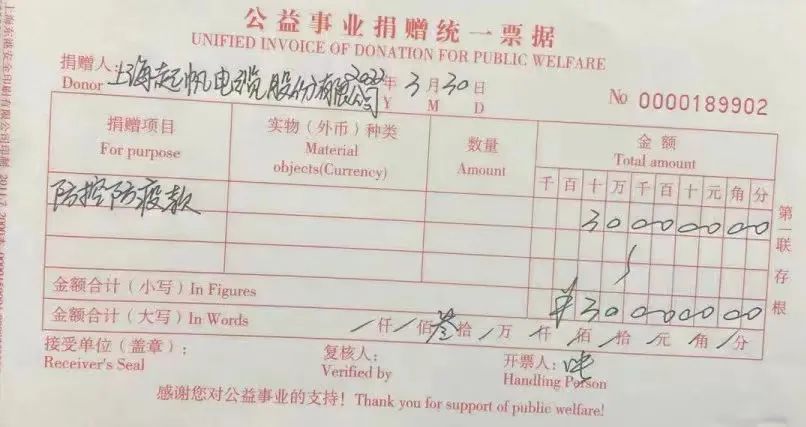 公益事业捐赠统一票据
UNIFIED INVOICE OF DONATION FOR PUBLIC WELFARE
捐赠人: 上海起帆电缆股份有限公司 2022年3月30日
Donor Y M D
№ 0000189902
捐赠项目 实物（外币）种类 数量 金额
For purpose Material objects(Currency) Amount Total amount
千 百 十 万 千 百 十 元 角 分
防控防疫款 30000000
金额合计（小写）In Figures ¥30000000
金额合计（大写）In Words /仟/佰叁拾/万/仟/佰/拾/元/角/分
接受单位（盖章）： 复核人： 开票人：
Receiver's Seal Verified by Handling Person
感谢您对公益事业的支持！Thank you for support of public welfare!
第一联 存根